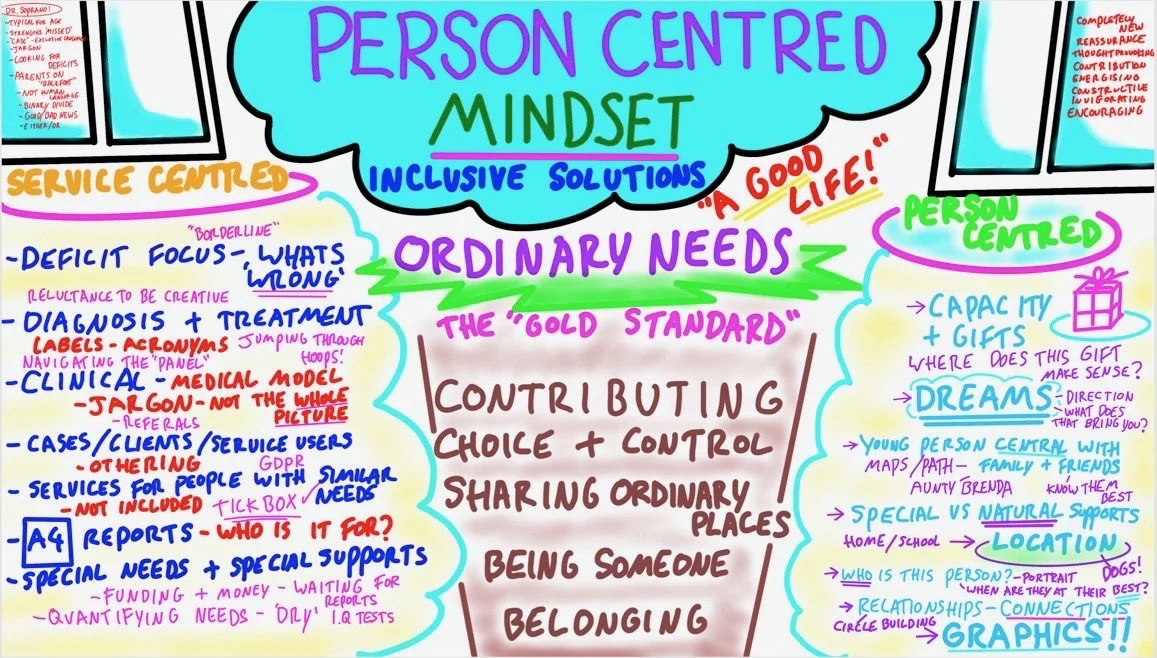 DR. SOPRANO!
- TYPICAL FOR AGE
- STRENGTHS MISSED
- "CASE" - EXCLUSIVE LANGUAGE
- JARGON
- LOOKING FOR DEFICITS
- PARENTS ON "BACKFOOT"
- NOT HUMAN LANGUAGE
- BINARY DIVIDE
- GOOD/BAD NEWS
- EITHER/OR
PERSON CENTRED
MINDSET
INCLUSIVE SOLUTIONS
COMPLETELY NEW
REASSURANCE
THOUGHT PROVOKING
CONTRIBUTION
ENERGISING
CONSTRUCTIVE
INVIGORATING
ENCOURAGING
SERVICE CENTRED
"BORDERLINE"
- DEFICIT FOCUS - WHATS
'WRONG'
RELUCTANCE TO BE CREATIVE
- DIAGNOSIS + TREATMENT
LABELS - ACRONYMS JUMPING THROUGH
HOOPS!
NAVIGATING THE "PANEL"
- CLINICAL - MEDICAL MODEL
- JARGON - NOT THE WHOLE
PICTURE
- REFERALS
- CASES/CLIENTS/SERVICE USERS
- OTHERING GDPR
- SERVICES FOR PEOPLE WITH SIMILAR
NEEDS
- NOT INCLUDED TICK BOX ✓
- A4 REPORTS - WHO IS IT FOR?
- SPECIAL NEEDS + SPECIAL SUPPORTS
- FUNDING + MONEY - WAITING FOR
REPORTS
- QUANTIFYING NEEDS - 'DRY' I.Q TESTS
"A GOOD
LIFE!"
ORDINARY NEEDS
THE "GOLD STANDARD"
CONTRIBUTING
CHOICE + CONTROL
SHARING ORDINARY
PLACES
BEING SOMEONE
BELONGING
PERSON
CENTRED
→ CAPACITY
+ GIFTS
WHERE DOES THIS GIFT
MAKE SENSE?
→ DREAMS - DIRECTION
- WHAT DOES
THAT BRING YOU?
→ YOUNG PERSON CENTRAL WITH
MAPS/PATH - FAMILY + FRIENDS
AUNTY BRENDA KNOW THEM
BEST
→ SPECIAL VS NATURAL SUPPORTS
HOME/SCHOOL → LOCATION
DOGS!
→ WHO IS THIS PERSON? - PORTRAIT
WHEN ARE THEY AT THEIR BEST?
→ RELATIONSHIPS - CONNECTIONS
CIRCLE BUILDING
→ GRAPHICS!!